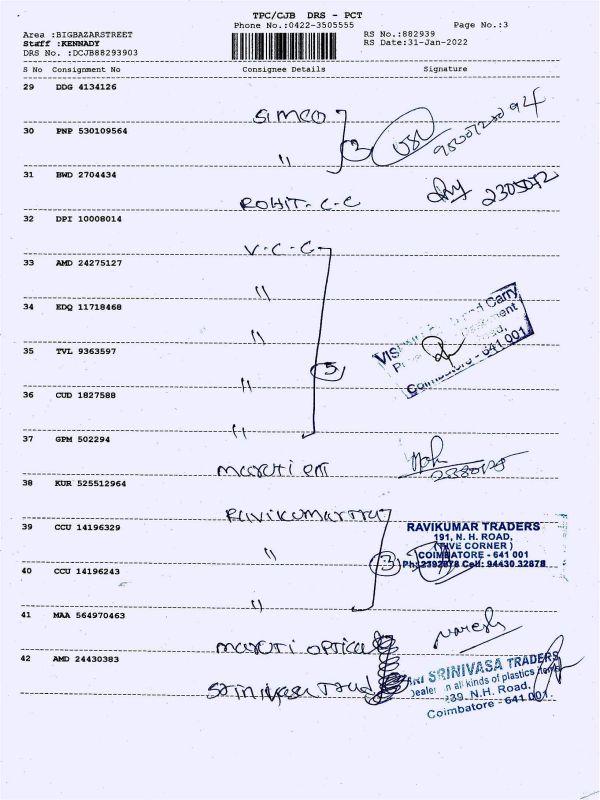 TPC/CJB DRS - PCT
Phone No.:0422-3505555 Page No.:3
Area :BIGBAZARSTREET RS No.:882939
Staff :KENNADY RS Date:31-Jan-2022
DRS No. :DCJB88293903
S No Consignment No Consignee Details Signature
29 DDG 4134126
SIMCO
30 PNP 530109564
" 2
31 BWD 2704434
ROHIT-C-C 2305072
32 DPI 10008014
V-C-C
33 AMD 24275127
"
34 EDQ 11718468
"
35 TVL 9363597
" 5
36 CUD 1827588
"
37 GPM 502294
maruti
38 KUR 525512964
Ravikumar Tra
39 CCU 14196329
" 3
RAVIKUMAR TRADERS
191, N. H. ROAD,
(FIVE CORNER)
COIMBATORE - 641 001
Ph:2392878 Cell: 94430 32878
40 CCU 14196243
"
41 MAA 564970463
maruti optical naresh
42 AMD 24430383
Srinivasa Trad
SRI SRINIVASA TRADERS
Dealer in all kinds of plastics items
239, N.H. Road,
Coimbatore - 641 001.
and Carry
Coimbatore - 641 001